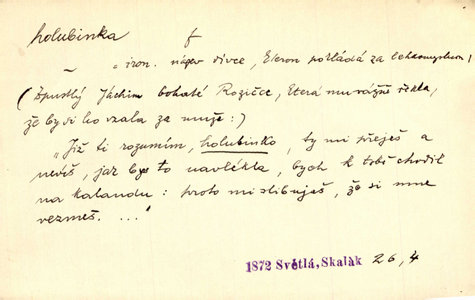 holubinka f
~ „ iron. název dívce, kterou pokládá za lehkomyslnou,
(Zpustlý Jáchim bohaté Rozičce, která mu vážně řekla,
že by si ho vzala za muže:)
„Již ti rozumím, holubinko, ty mi přeješ a
nevíš, jak bys to navlékla, bych k tobě chodil
na kalandu: proto mi slibuješ, že si mne
vezmeš. ..."
1872 Světlá, Skalák 26, 4